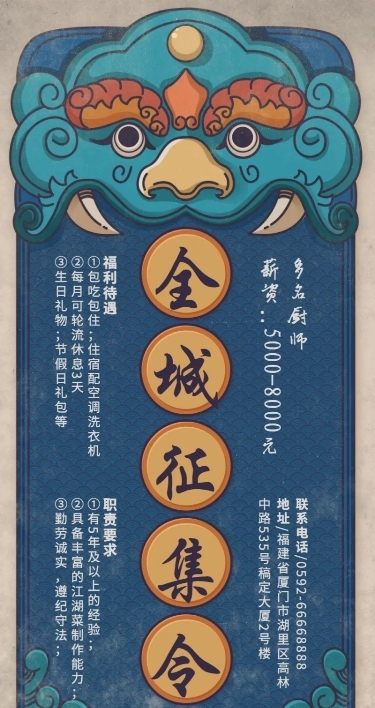 全城征集令
多名厨师
薪资:5000-8000元
联系电话/0592-66668888
地址/福建省厦门市湖里区高林
中路535号稿定大厦2号楼
福利待遇
①包吃包住;住宿配空调洗衣机
②每月可轮流休息3天
③生日礼物;节假日礼包等
职责要求
①有5年及以上的经验;
②具备丰富的江湖菜制作能力;
③勤劳诚实,遵纪守法;